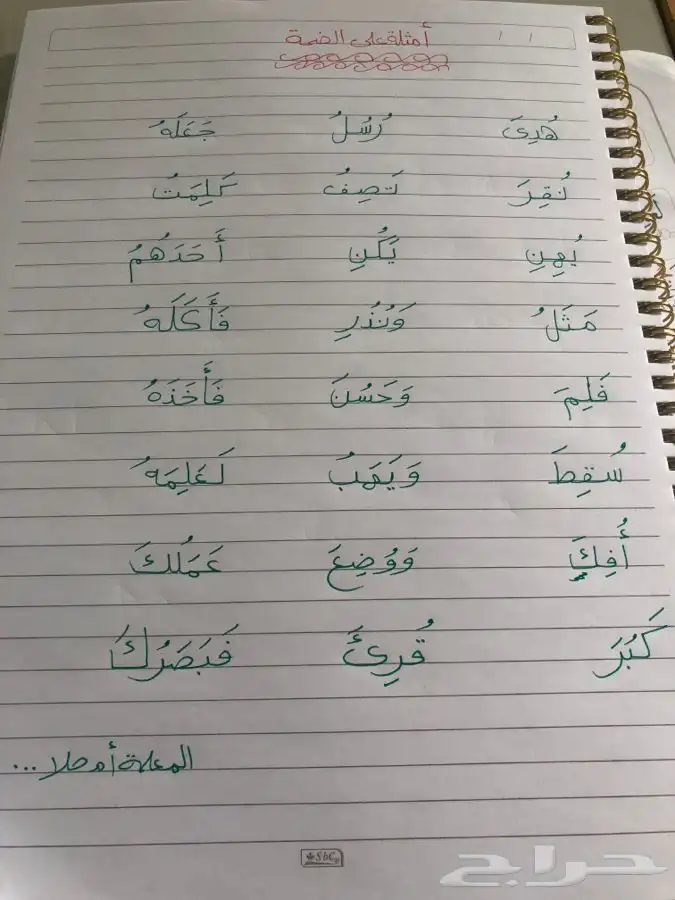 أمثلة على الضمة
هُدِىَ رُسُلُ جَعَلَهُ
نُقِرَ تَصِفُ كَلِمَتُ
يُهِنِ يَكُنِ أَحَدَهُمُ
مَثَلُ وَنُذُرِ فَأَكَلَهُ
فَلِمَ وَحَسُنَ فَأَخَذَهُ
سُقِطَ وَيَهَبُ لَعَلِمَهُ
أُفِكَ وَوُضِعَ عَمَلُكَ
كَبُرَ قُرِئَ فَبَصَرُكَ
المعلمة أم حلا ...
SbCo
حراج